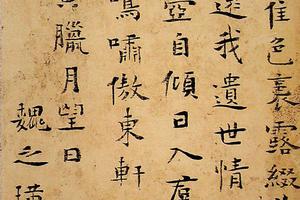 佳色裛露掇
遠我遺世情
壺自傾日入
鳴嘯傲東軒
臘月望日
魏之璜